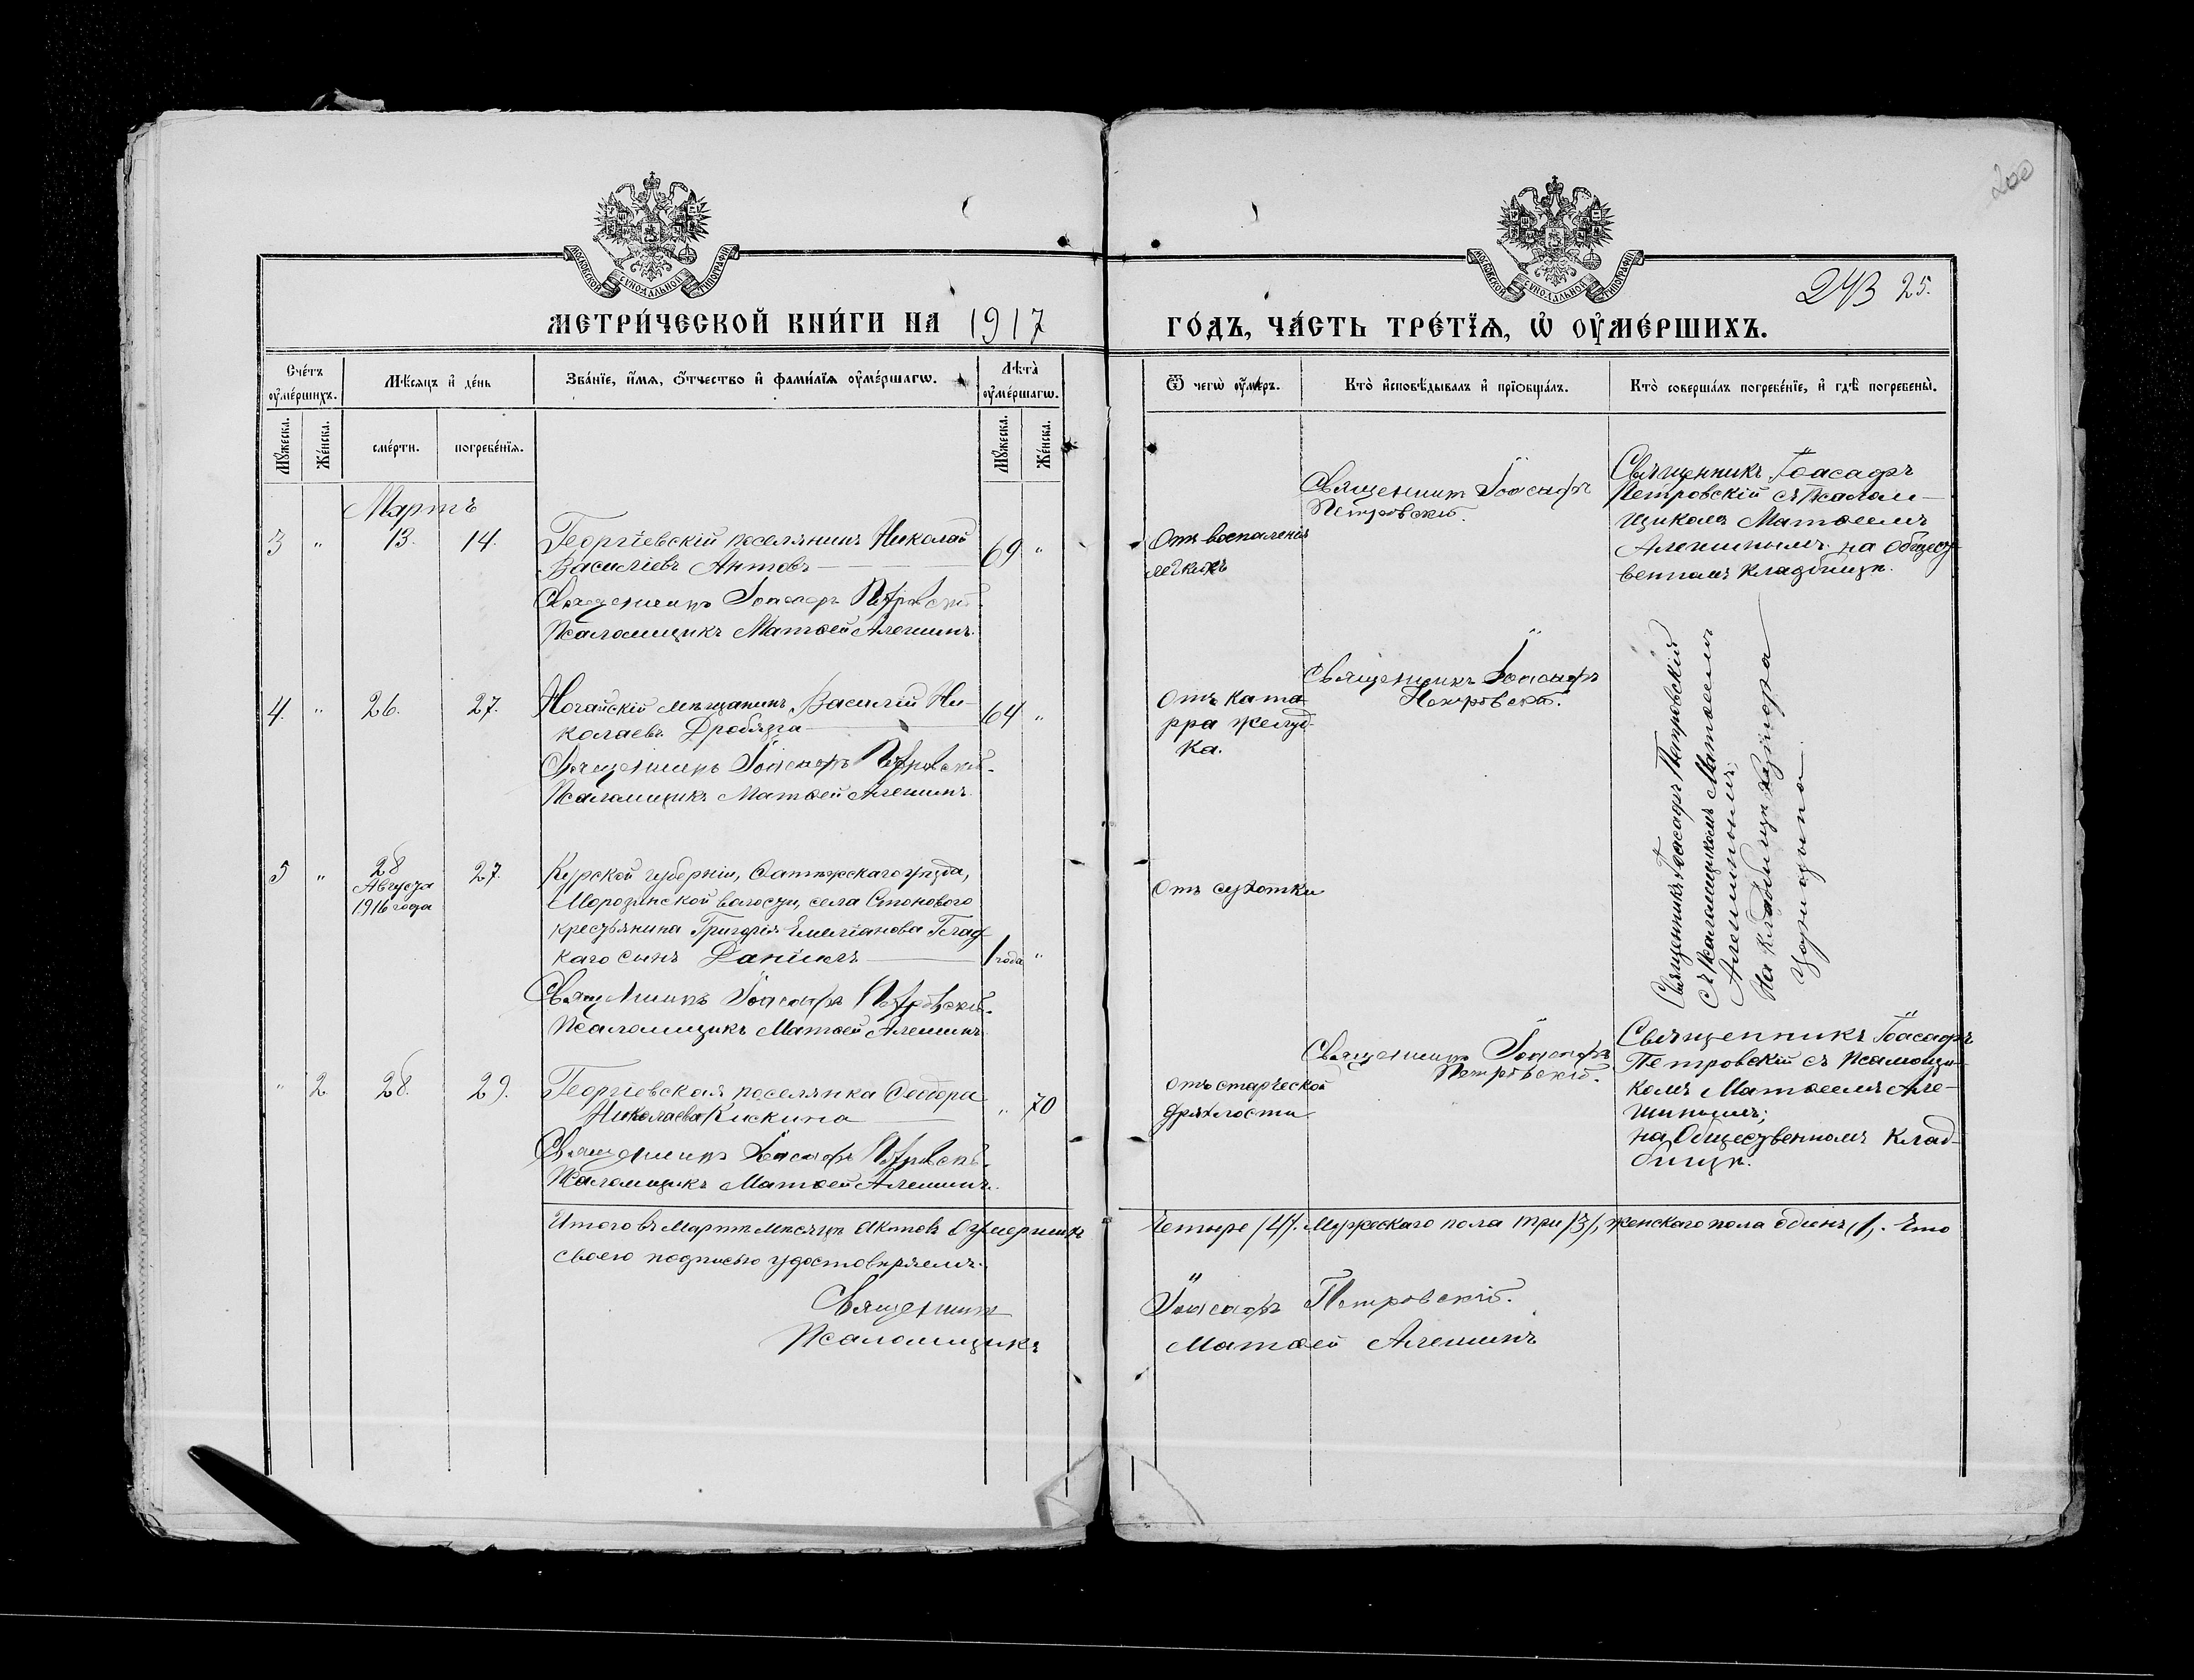 200
МОСКОВСКОЙ СѴНОДАЛЬНОЙ ТИПОГРАФІИ
МОСКОВСКОЙ СѴНОДАЛЬНОЙ ТИПОГРАФІИ
243 25.
МЕТРИ́ЧЕСКОЙ КНИ́ГИ НА 1917
ГО́ДЪ, ЧА́СТЬ ТРЕ́ТЇѦ, Ѡ҆ ОУ҆МЕ́РШИХЪ.
Сче́тъ оу҆ме́ршихъ.
Мѣ́сѧцъ и҆ де́нь
Зва́нїе, и҆́мѧ, ѻ҆́тчество и҆ фами́лїѧ оу҆ме́ршагѡ.
Лѣ̀та оу҆ме́ршагѡ.
Ѿ чегѡ̀ оу҆́меръ.
Кто̀ и҆сповѣ́дывалъ и҆ прїобща́лъ.
Кто̀ соверша́лъ погребе́нїе, и҆ гдѣ̀ погребены̀.
Мꙋ́жеска.
Же́нска.
сме́рти.
погребе́нїѧ.
Мꙋ́жеска.
Же́нска.
Мартъ
3 " 13. 14.
Георгіевскій поселянинъ Николай
Василіевъ Антовъ
69 "
Священникъ Іоасафъ Петровскій
Псаломщикъ Матѳей Алешинъ.
Отъ воспаленія
легкихъ
Священникъ Іоасафъ
Петровскій.
Священникъ Іоасафъ
Петровскій съ Псалом-
щикомъ Матѳеемъ
Алешинымъ. на общест-
венномъ кладбищѣ.
4. " 26. 27.
Ногайскій мѣщанинъ Василій Ни-
колаевъ Дробязга
64 "
Священникъ Іоасафъ Петровскій.
Псаломщикъ Матѳей Алешинъ.
Отъ ката-
рра желуд-
ка.
Священникъ Іоасафъ
Петровскій.
Священникъ Іоасафъ Петровскій
съ Псаломщикомъ Матѳеемъ
Алешинымъ;
На кладбищѣ хутора
5 " 28 Августа 1916 года 27.
Курской губерніи,
волости, села
крестьянина Григорія Емеліанова Глад-
каго сынъ Даніилъ
1 года "
Священникъ Іоасафъ Петровскій.
Псаломщикъ Матѳей Алешинъ
Отъ сухотки
" 2 28. 29.
Георгіевская поселянка Ѳеодора
Николаева Кискина
" 70
Священникъ Іоасафъ Петровскій.
Псаломщикъ Матѳей Алешинъ.
отъ старческой
дряхлости
Священникъ Іоасафъ
Петровскій.
Священникъ Іоасафъ
Петровскій съ Псаломщи-
комъ Матѳеемъ Але-
шинымъ;
на Общественномъ клад-
бищѣ.
Итого въ Мартѣ мѣсяцѣ актовъ о умершихъ четыре /4/. Мужескаго пола три /3/, женскаго пола одинъ /1/. Что
своею подписью удостовѣряемъ.
Священникъ Іоасафъ Петровскій.
Псаломщикъ Матѳей Алешинъ